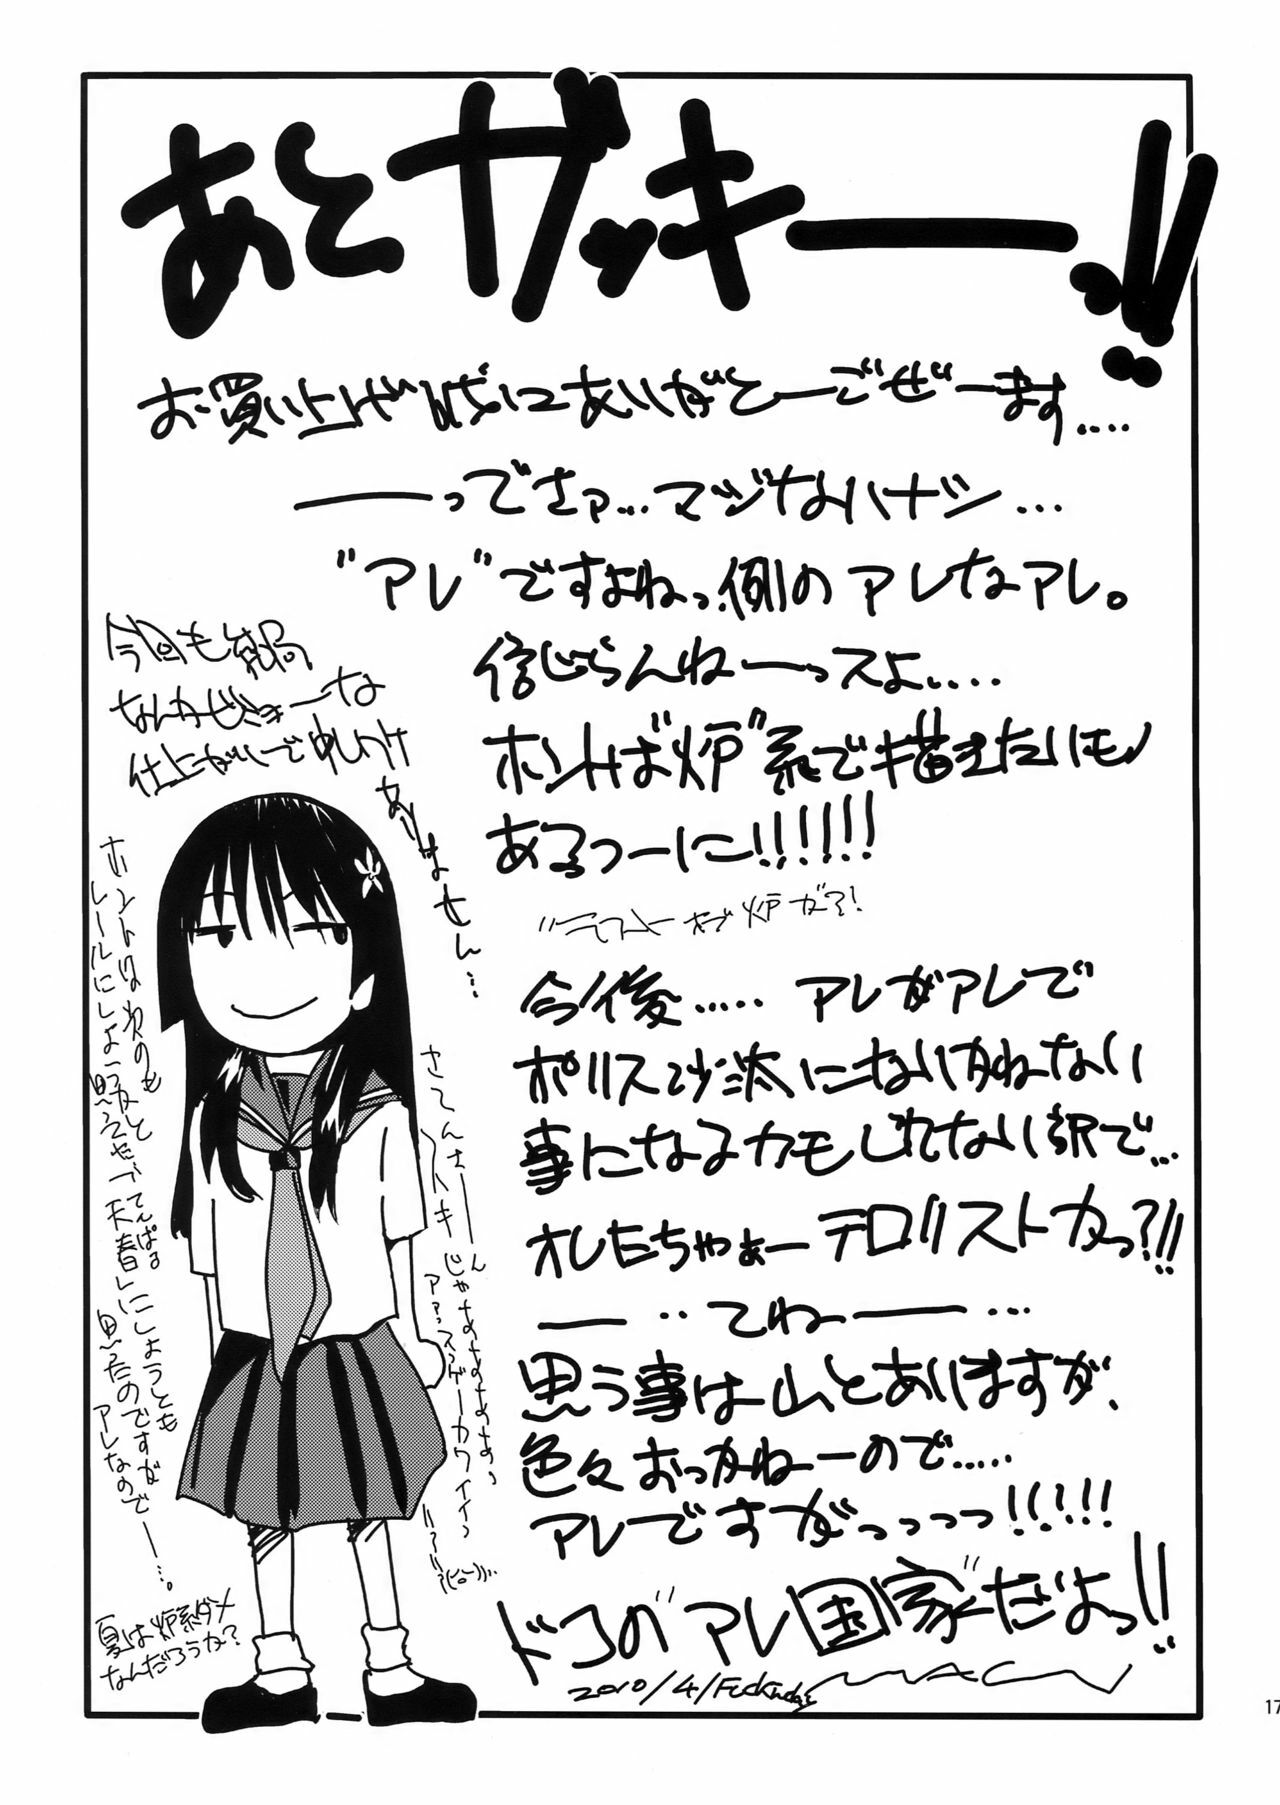 あとガッキー!!
お買い上げ誠にありがとーごぜーます....
――ってさァ...マジなハナシ...
"アレ"ですよねっ、例のアレなアレ。
信じらんねーっスよ....
ホントは"炉"系で描きたいモノ
あるつーに!!!!!!
今後.....アレがアレで
ポリス沙汰になりかねない
事になるカモしれない訳で...
オレたちゃぁーテロリストかっ?!!
――‥てねー――...
思う事は山とありますが、
色々おっかねーので.....
アレですがっっっっ!!!!!
ドコの"アレ国家"だよっ!!
2010/4/
今回も結局
なんかびみょーな
仕上がりで申しわけ
ありません...
さてんさーん
じゃなななない、
スンゲーカワイイ
ホントは次のも
レールにしようかなと
思うそたが
てんぱる
天春しにしようとも
思ったのですが
アレなので―...。
夏は炉系ダメ
なんだろうか?
17